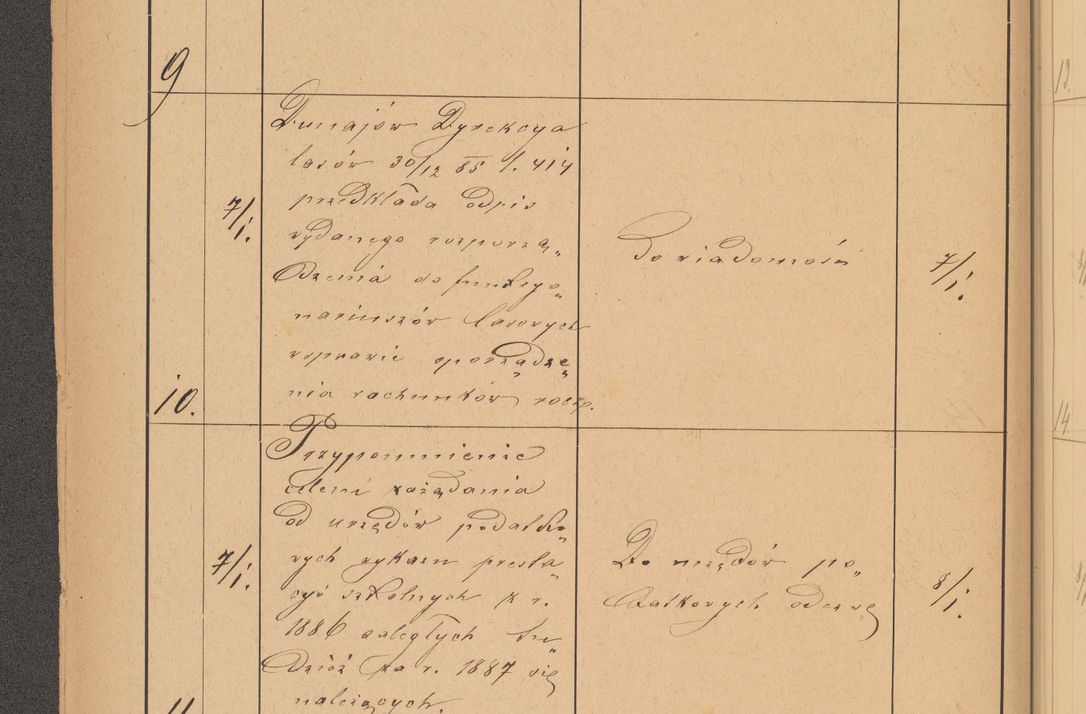 9
Dunajów Dyrekcya
lasów 30/12 85 l. 414
przedkłada odpis
wydanego rozporzą„
7/1.
dzenia do funkcyo„
naryuszów lasowych
w sprawie sporządze„
nia rachunków roczn.
Do wiadomości
7/1.
10.
Przypomnienie
celem zażądania
od urzędów podatko„
wych wykazu presta„
7/1.
cyi szkolnych za r.
1886 zaległych tu„
dzież za r. 1887 się
należących.
Do urzędów po„
datkowych odezwę
8/1.
11
13.
14